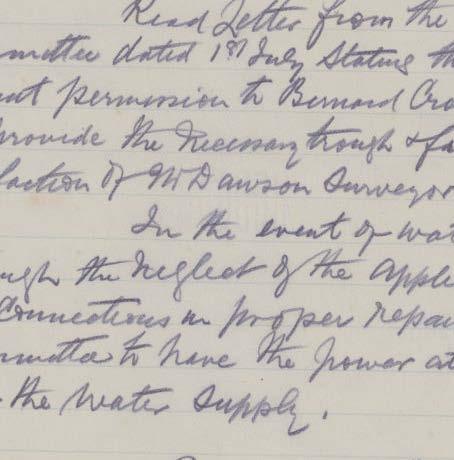 Read Letter from the
mmittee dated 1st July Stating th
ant permission to Bernard Cro
provide the necessary trough & fa
faction of Mr Dawson Surveyor
In the event of wat
ough the Neglect of the Apple
Connections in proper repai
mmittee to have the power at
the Water Supply.